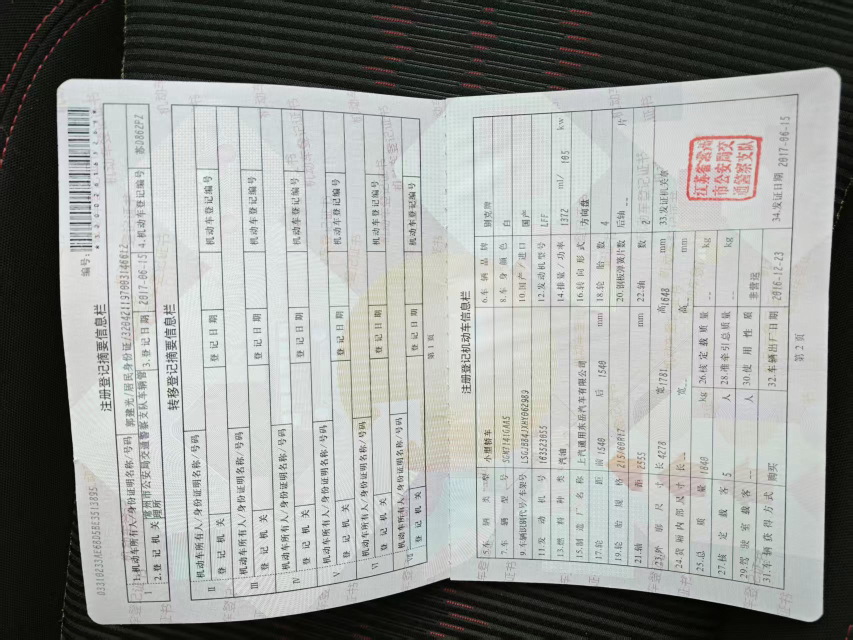 编号:
注册登记摘要信息栏
1.机动车所有人/身份证明名称/号码 郭建光/居民身份证/320421197003146612
2.登记机关 常州市公安局交通警察支队车辆管理所 3.登记日期 2017-06-15 4.机动车登记编号 苏D862P2
转移登记摘要信息栏
机动车所有人/身份证明名称/号码
II 登记机关 登记日期 机动车登记编号
机动车所有人/身份证明名称/号码
III 登记机关 登记日期 机动车登记编号
机动车所有人/身份证明名称/号码
IV 登记机关 登记日期 机动车登记编号
机动车所有人/身份证明名称/号码
V 登记机关 登记日期 机动车登记编号
机动车所有人/身份证明名称/号码
VI 登记机关 登记日期 机动车登记编号
机动车所有人/身份证明名称/号码
VII 登记机关 登记日期 机动车登记编号
第1页
注册登记机动车信息栏
5.车辆类型 小型轿车 6.车辆品牌 别克牌
7.车辆型号 SGM7141GAA5 8.车身颜色 白
9.车辆识别代号/车架号 LSGJB84JXHY062989 10.国产/进口 国产
11.发动机号 163523055 12.发动机型号 LFF
13.燃料种类 汽油 14.排量/功率 1372 ml/ 105 kw
15.制造厂名称 上汽通用东岳汽车有限公司 16.转向形式 方向盘
17.轮距 前 1540 后 1540 mm 18.轮胎数 4
19.轮胎规格 215/60R17 20.钢板弹簧片数 后轴 -- 片
21.轴距 2555 mm 22.轴数 2
23.外廓尺寸 长 4278 宽 1781 高 1648 mm 33.发证机关章
24.货厢内部尺寸 长 -- 宽 -- 高 -- mm
25.总质量 1840 kg 26.核定载质量 -- kg
27.核定载客 5 人 28.准牵引总质量 -- kg
29.驾驶室载客 -- 人 30.使用性质 非营运
31.车辆获得方式 购买 32.车辆出厂日期 2016-12-23 34.发证日期 2017-06-15
江苏省常州
市公安局交
通警察支队
第2页